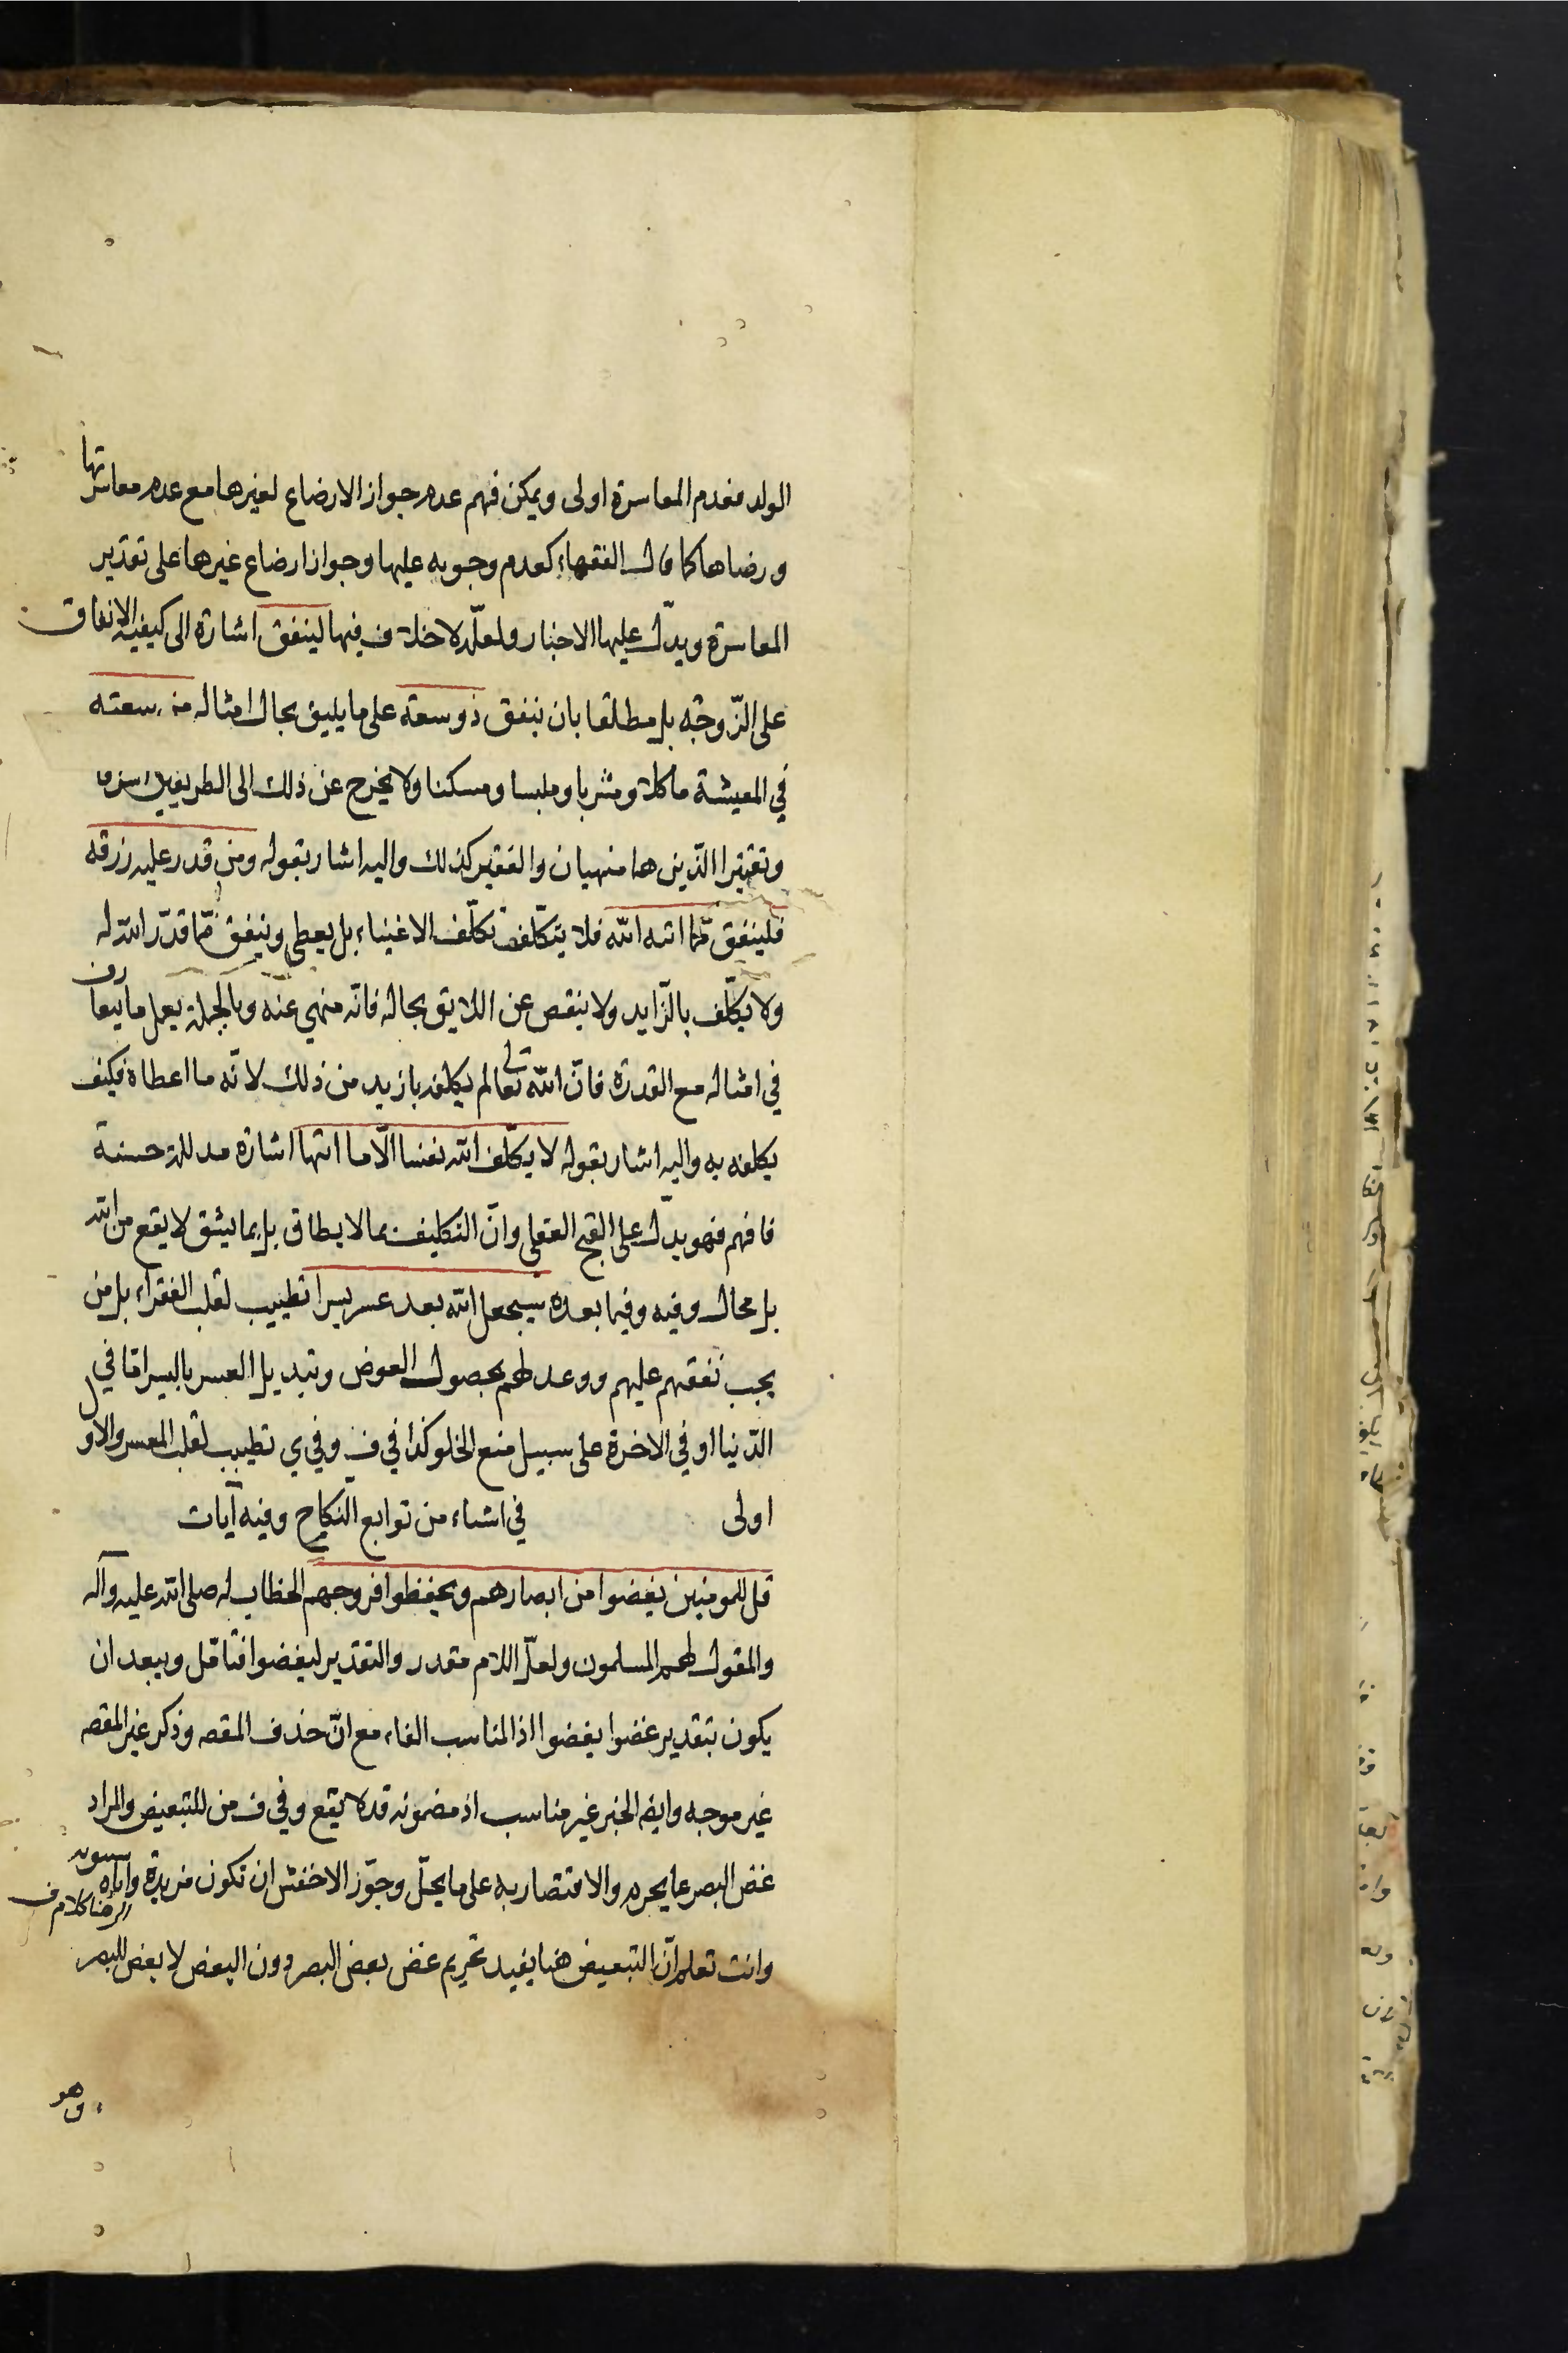 الولد فعدم المعاسرة اولى ويمكن فهم عدم جواز الارضاع لغيرها مع عدم معاسرتها
ورضاها كما قال الفقهاء كعدم وجوبه عليها وجواز ارضاع غيرها على تقدير
المعاسرة ويدل عليها الاخبار ولعلّه لا خلاف فيها لينفق اشارة الى كيفية الانفاق
على الزّوجة بل مطلقا بان ينفق ذو سعة على ما يليق بحال امثاله من سعته
في المعيشة ماكلا ومشربا وملبسا ومسكنا ولا يخرج عن ذلك الى الطريفين اسرفا
وتقتيرا الذين هما منهيان والفقير كذلك واليه اشار بقوله ومن قدر عليه رزقه
فلينفق ممّا اتيه الله فلا يتكلّف تكلّف الاغنياء بل يعطى وينفق ممّا قدّر الله له
ولا يكلّف بالزّايد ولا ينقص عن اللايق بحاله فانّه منهي عنه وبالجملة يعمل ما يتعارف
في امثاله مع القدرة فانّ الله تعالى لم يكلفه بازيد من ذلك لانّه ما اعطاه فكيف
يكلفه به واليه اشار بقوله لا يكلّف الله نفسا الّا ما اتيها اشارة مدللة حسنة
فافهم فهو يدلّ على القبح العقلي وانّ التكليف بما لا يطاق بل بما يشق لا يقع من الله
بل محال وفيه وفيما بعده سيجعل الله بعد عسر يسرا تطييب لقلب الفقراء بل من
يجب نفقتهم عليهم ووعد لهم بحصول العوض وتبديل العسر باليسر امّا في
الدّنيا او في الاخرة على سبيل منع الخلو كذا في ف وفي ي تطييب لقلب المعسر والاول
اولى في اشياء من توابع النكاح وفيه آيات
قل للمومنين يغضوا من ابصارهم ويحفظوا فروجهم الخطاب له صلى الله عليه وآله
والمقول لهم المسلمون ولعلّ اللام مقدر والتقدير ليغضوا فتامّل ويبعد ان
يكون بتقدير غضوا يغضوا اذ المناسب الفاء مع انّ حذف المقصه وذكر غير المقصه
غير موجه وايضه الخبر غير مناسب اذ مضمونه قد لا يقع وفي ف من للتبعيض والمراد
غض البصر عما يحرم والاقتصار به على ما يحلّ وجوّز الاخفش ان تكون مزيدة واباه سيبويه
وانت تعلم انّ التبعيض هنا يفيد تحريم غض بعض البصر دون البعض لا بعض المبصر
وهو